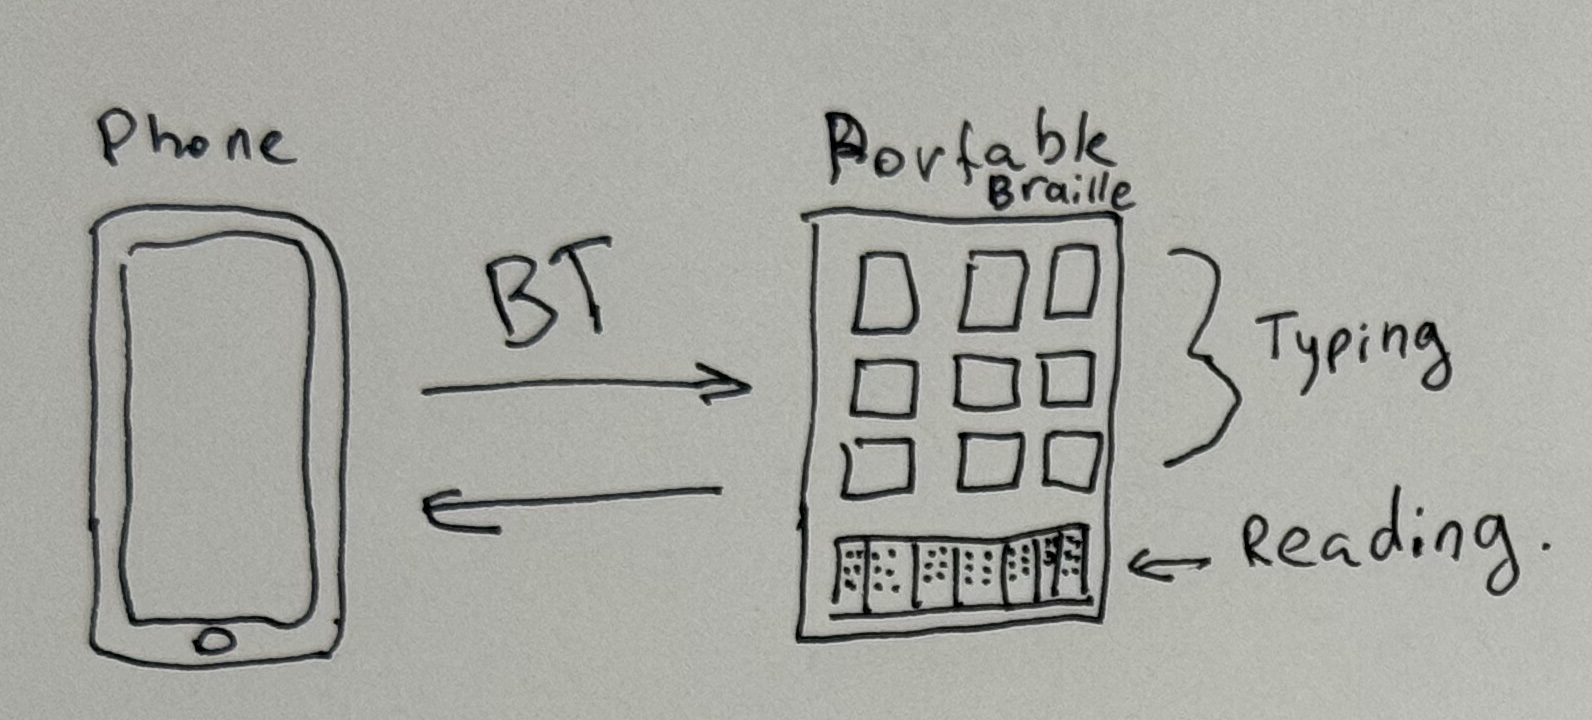 Phone
Portable
Braille
BT
Typing
Reading.